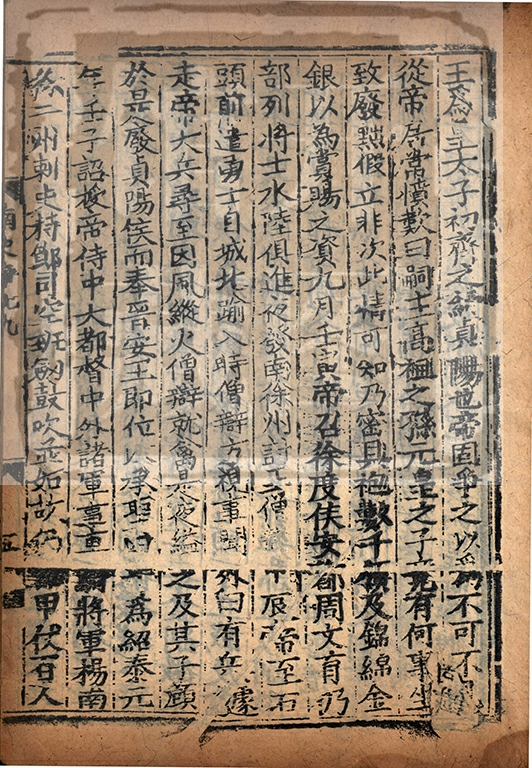 王為皇太子初齊之納貞陽也帝固爭之以為不可不
從帝居常憤歎曰嗣主高祖之孫元皇之子竟有何辜坐
致廢黜假立非次此情可知乃密具袍數千領及錦綿金
銀以為賞賜之資九月壬寅帝召徐度侯安都周文育乃
部列將士水陸俱進夜發南徐州討王僧辰帝至石
頭前遣勇士自城北踰入時僧辯方視事聞外白有兵遽
走帝大兵尋至因風縱火僧辯就禽是夜縊之及其子頠
於是廢貞陽侯而奉晉安王即位以承聖四年為紹泰元
年壬子詔授帝侍中大都督中外諸軍事車將軍楊南
徐二州刺史持節司空班劔鼓吹並如故仍甲仗百人
南史 九
五